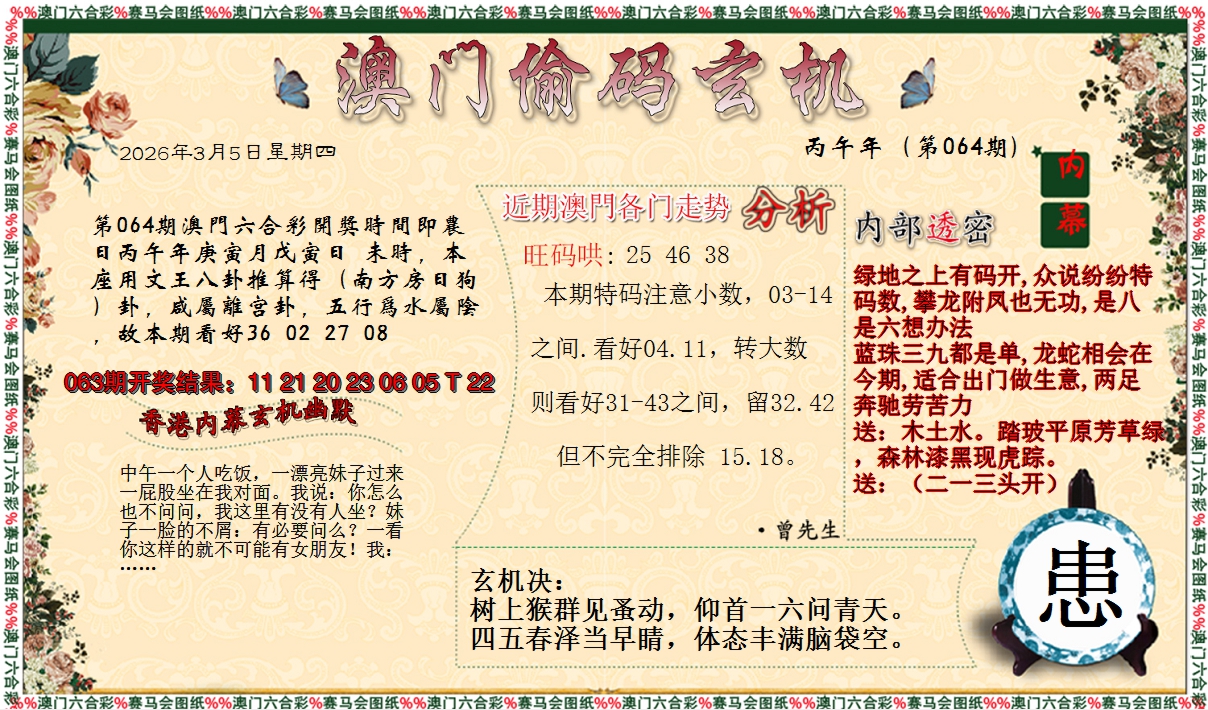 %%澳门六合彩%赛马会图纸%%澳门六合彩%赛马会图纸%%澳门六合彩%赛马会图纸%%澳门六合彩%赛马会图纸%%澳门六合彩%赛马会图纸%%澳门六合彩%赛马会图纸%%
澳门偷码玄机
2026年3月5日星期四
丙午年（第064期）
内幕
第064期澳門六合彩開獎時間即農
日丙午年庚寅月戊寅日 未時，本
座用文王八卦推算得（南方房日狗
）卦，咸屬離宮卦，五行爲水屬陰
，故本期看好36 02 27 08
063期开奖结果：11 21 20 23 06 05 T 22
香港内幕玄机幽默
中午一个人吃饭，一漂亮妹子过来
一屁股坐在我对面。我说：你怎么
也不问问，我这里有没有人坐？妹
子一脸的不屑：有必要问么？一看
你这样的就不可能有女朋友！我：
……
近期澳門各门走势 分析
旺码哄: 25 46 38
本期特码注意小数，03-14
之间.看好04.11，转大数
则看好31-43之间，留32.42
但不完全排除 15.18。
·曾先生
内部透密
绿地之上有码开,众说纷纷特
码数,攀龙附凤也无功,是八
是六想办法
蓝珠三九都是单,龙蛇相会在
今期,适合出门做生意,两足
奔驰劳苦力
送：木土水。踏玻平原芳草绿
，森林漆黑现虎踪。
送：（二一三头开）
玄机决：
树上猴群见蚤动，仰首一六问青天。
四五春泽当早晴，体态丰满脑袋空。
患
%%澳门六合彩%赛马会图纸%%澳门六合彩%赛马会图纸%%澳门六合彩%赛马会图纸%%澳门六合彩%赛马会图纸%%澳门六合彩%赛马会图纸%%澳门六合彩%赛马会图纸%%